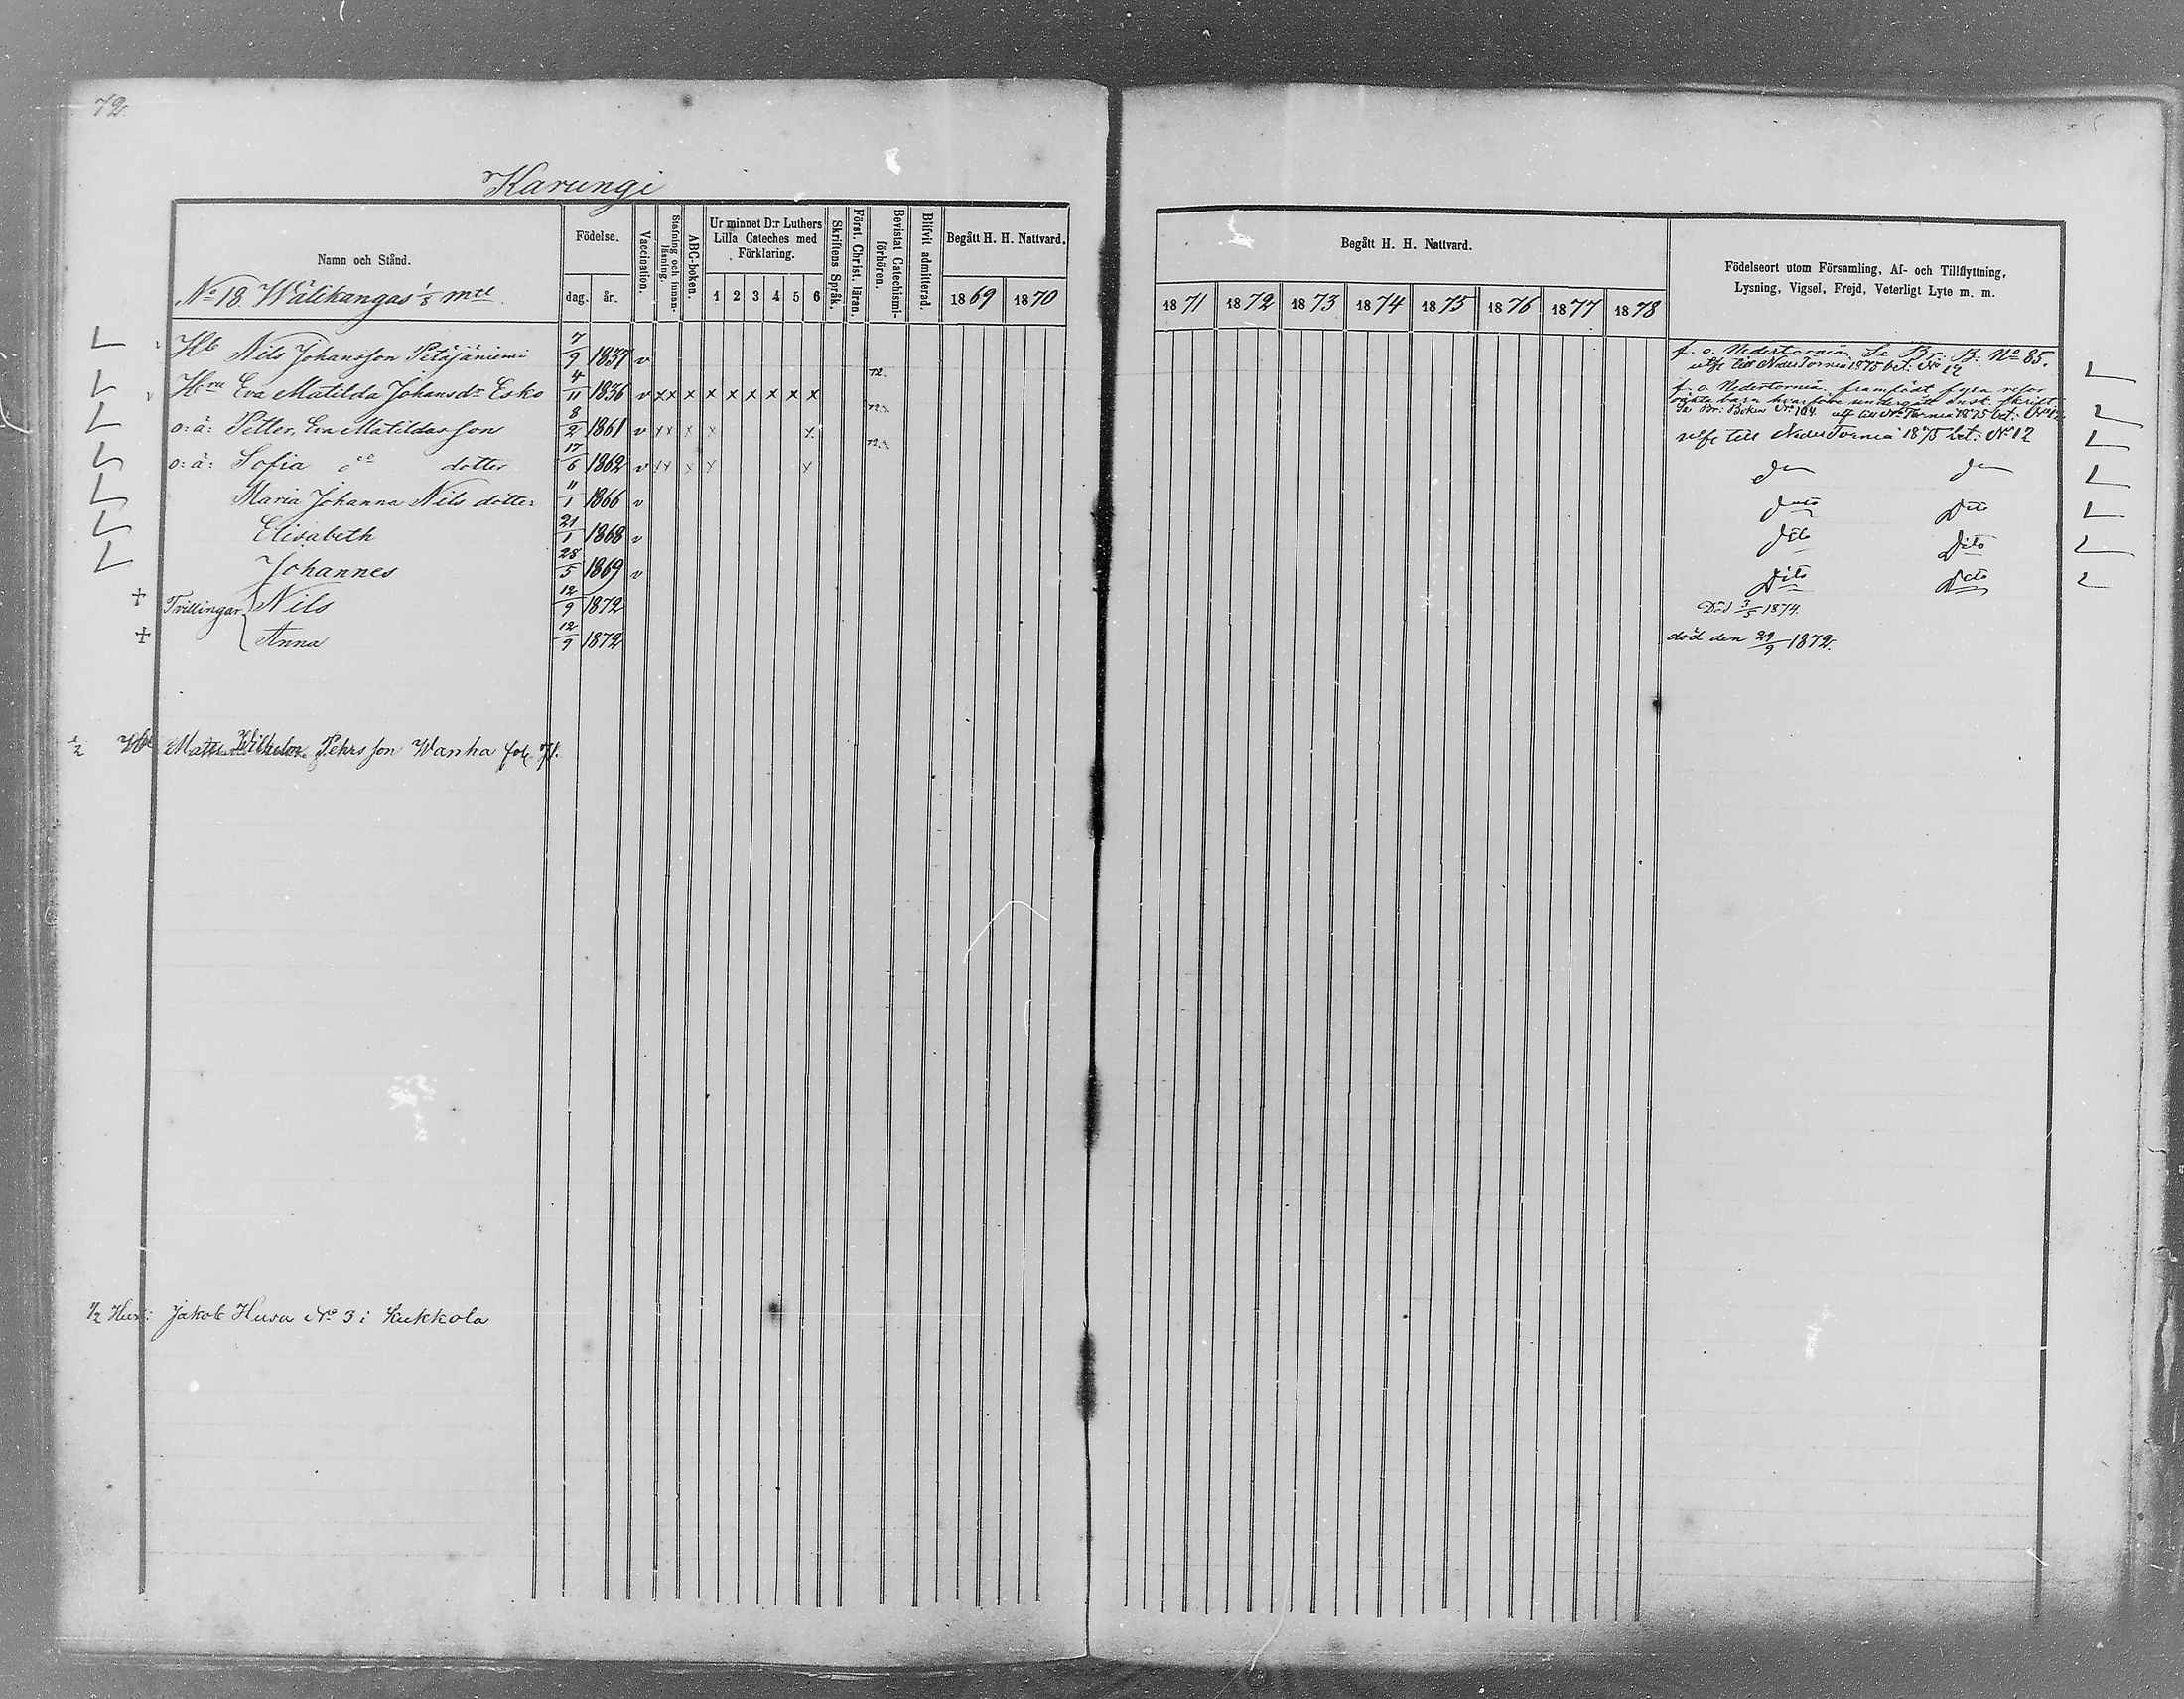 72.
Karungi
Namn och Stånd.
Födelse.
dag.
år.
Vaccination.
Stafning och innanläsning.
ABC-boken.
Ur minnet D:r Luthers Lilla Cateches med Förklaring.
1 2 3 4 5 6
Skriftens Språk.
Först. Christ. läran.
Bevistat Catechismiförhören.
Blifvit admitterad.
Begått H. H. Nattvard.
1869 1870
Begått H. H. Nattvard.
1871 1872 1873 1874 1875 1876 1877 1878
Födelseort utom Församling, Af- och Tillflyttning,
Lysning, Vigsel, Frejd, Veterligt Lyte m. m.
No 18. Wälikangas 1/8 mtl
Hb Nils Johansson Petäjäniemi 7/9 1837 v f. o. Nedertorneå. Se Br: B: No 85.
utfl till NederTorneå 1875 bet: No 12
Hru Eva Matilda Johansdr Esko 4/11 1836 v x x x x x x x x x 72. f. o. Nedertorneå. framfödt fyra
oäkta barn hvarföre undergått skrift
Se Br: Boken No 104. utfl till N. Torneå 1875 bet: No 12
o: ä: Petter, Eva Matildas son 8/2 1861 v x x x x x 72. utfl till NederTorneå 1875 bet: No 12
o: ä: Sofia do dotter 17/6 1862 v x x x x x 72.
Maria Johanna Nils dotter 11/1 1866 v Dito Dito
Elisabeth 21/1 1868 v Dito Dito
Johannes 28/5 1869 v Dito Dito
+ Tvillingar Nils 12/9 1872 Död 3/5 1874.
+ Anna 12/9 1872 död den 29/9 1872.
1/2 Matts Wilhelm Pehrsson Wanha fol. 71.
1/2 Hus: Jakob Husa No 3 i Kukkola